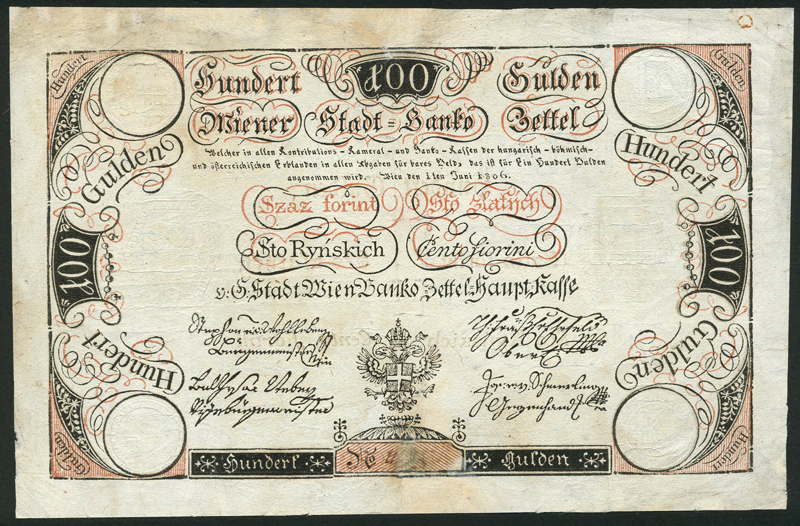 Hundert 100 Gulden
Wiener Stadt=Banko Zettel
Welcher in allen Kontributions- Kameral- und Banko-Kassen der hungarisch-böhmisch-
und österreichischen Erblanden in allen Abgaben für bares Geld, das ist für Ein Hundert Gulden
angenommen wird. Wien den 1ten Juni 1806.
Száz forint Sto zlatych
Sto Ryńskich Cento fiorini
v: G: Stadt Wien Banko Zettel=Haupt Kasse
Hundert Gulden
Gulden Hundert
100 100
Hundert Gulden
Gulden Hundert
Hundert No Gulden